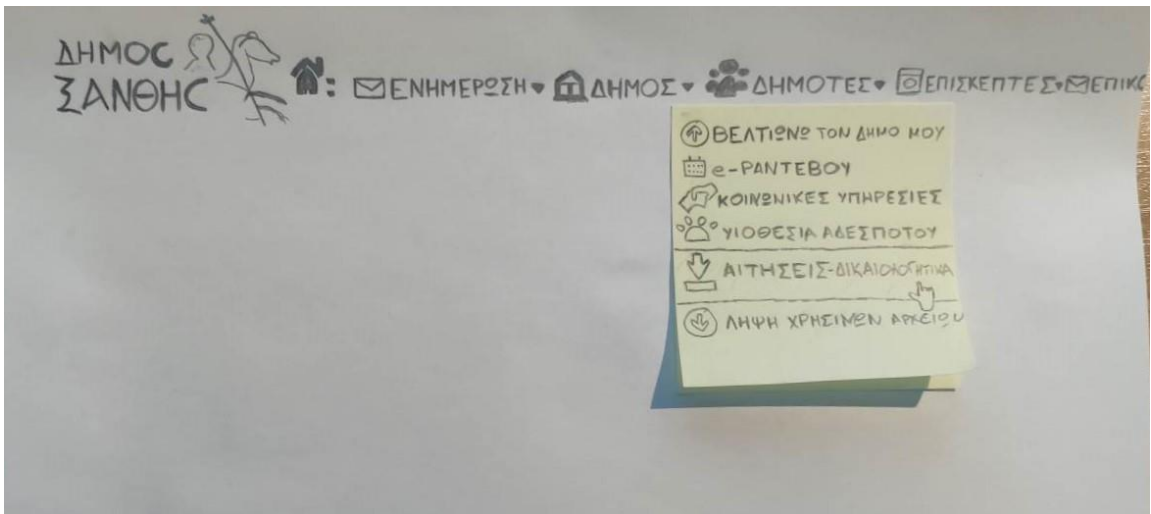 ΔΗΜΟC
ΞΑΝΘΗC
: ΕΝΗΜΕΡΩΣΗ ΔΗΜΟΣ ΔΗΜΟΤΕΣ ΕΠΙΣΚΕΠΤΕΣ ΕΠΙΚΟ
ΒΕΛΤΙΩΝΩ ΤΟΝ ΔΗΜΟ ΜΟΥ
e-ΡΑΝΤΕΒΟΥ
ΚΟΙΝΩΝΙΚΕΣ ΥΠΗΡΕΣΙΕΣ
ΥΙΟΘΕΣΙΑ ΑΔΕΣΠΟΤΟΥ
ΑΙΤΗΣΕΙΣ-ΔΙΚΑΙΟΛΟΓΗΤΙΚΑ
ΛΗΨΗ ΧΡΗΣΙΜΩΝ ΑΡΧΕΙΩΝ